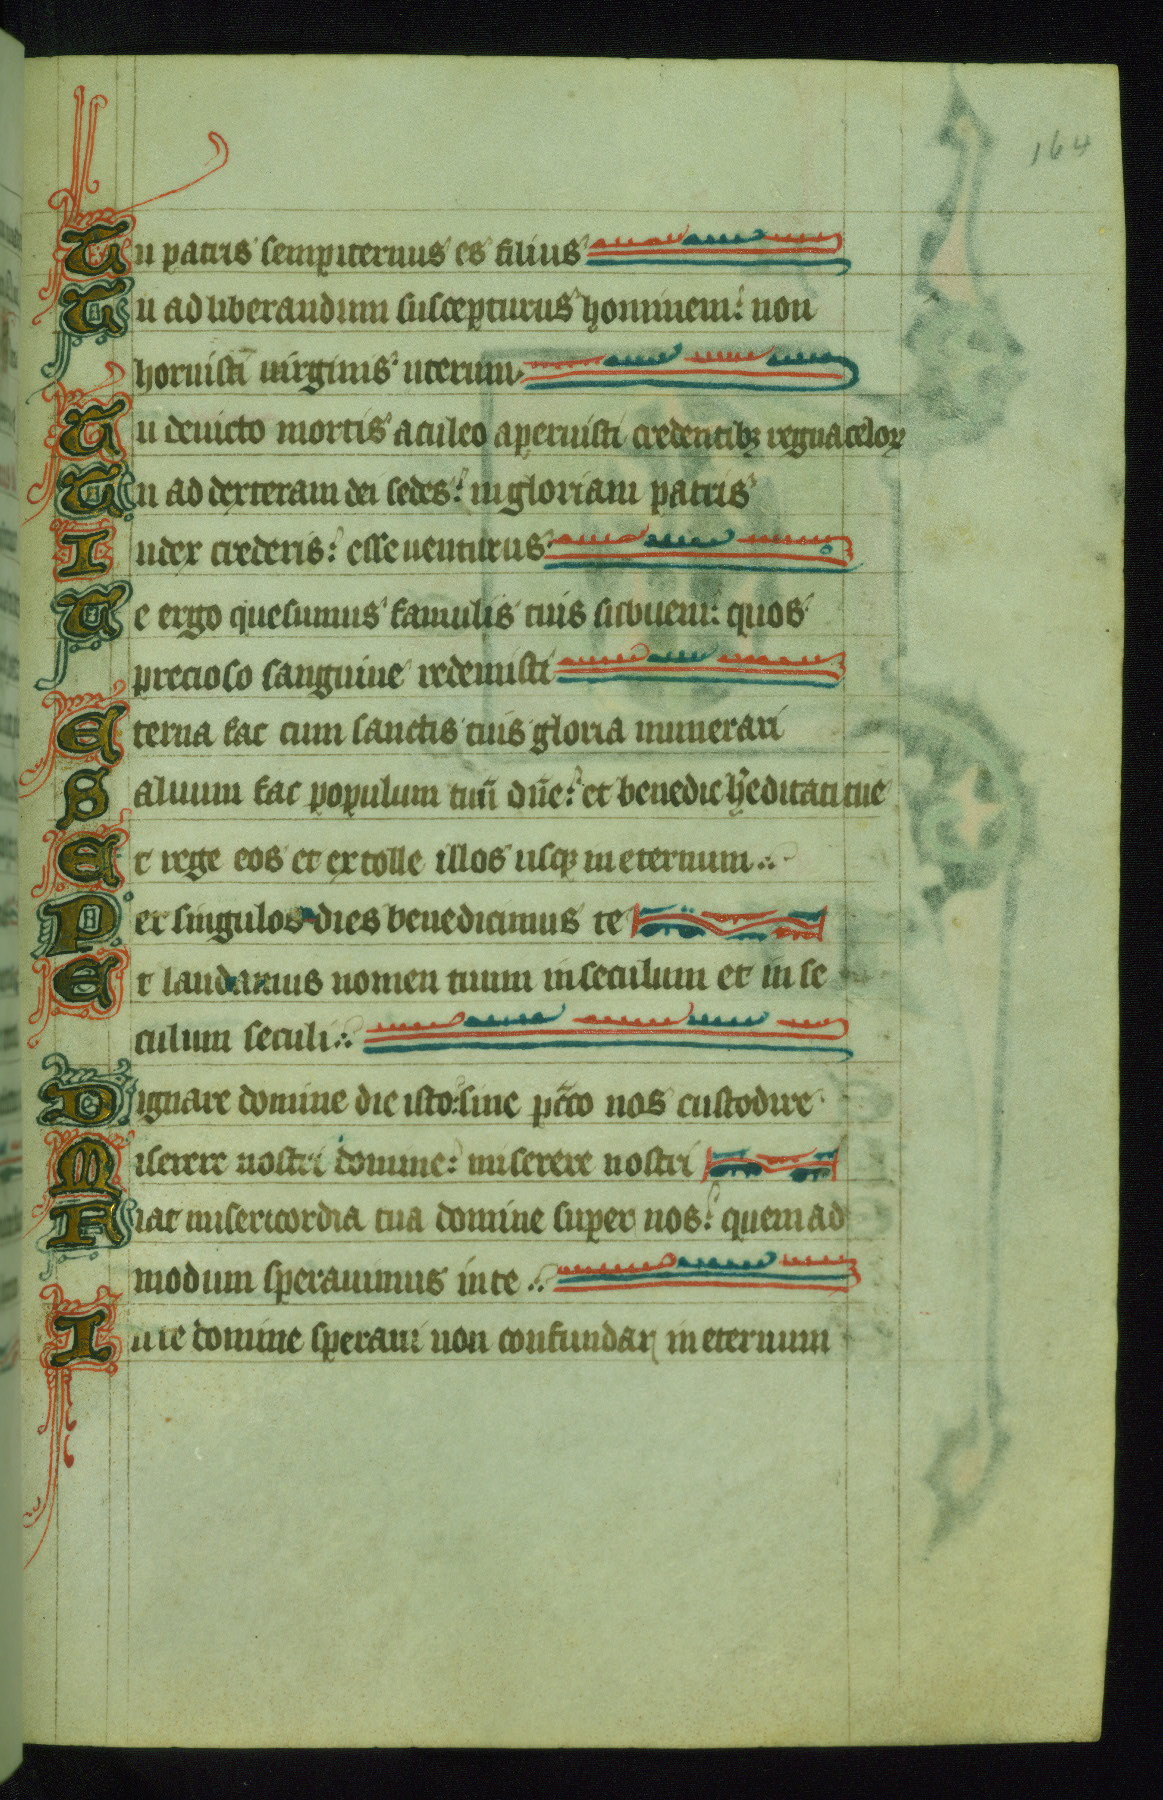 164
Tu patris sempiternus es filius
Tu ad liberandum suscepturus hominem: non
horruisti uirginis uterum
Tu deuicto mortis aculeo aperuisti credentibꝫ regna celoꝝ
Tu ad dexteram dei sedes: in gloriam patris
Iudex crederis: esse uenturus
Te ergo quesumus famulis tuis subueni: quos
precioso sanguine redemisti
Eterna fac cum sanctis tuis gloria numerari
Saluum fac populum tuū dn̄e: et benedic h̄editati tue
Et rege eos et extolle illos usqꝫ in eternum
Per singulos dies benedicimus te
Et laudamus nomen tuum in seculum et in se
culum seculi
Dignare domine die isto: sine pc̄c̄o nos custodire
Miserere nostri domine: miserere nostri
Fiat misericordia tua domine super nos: quemad
modum sperauimus in te
In te domine speraui non confundar in eternum